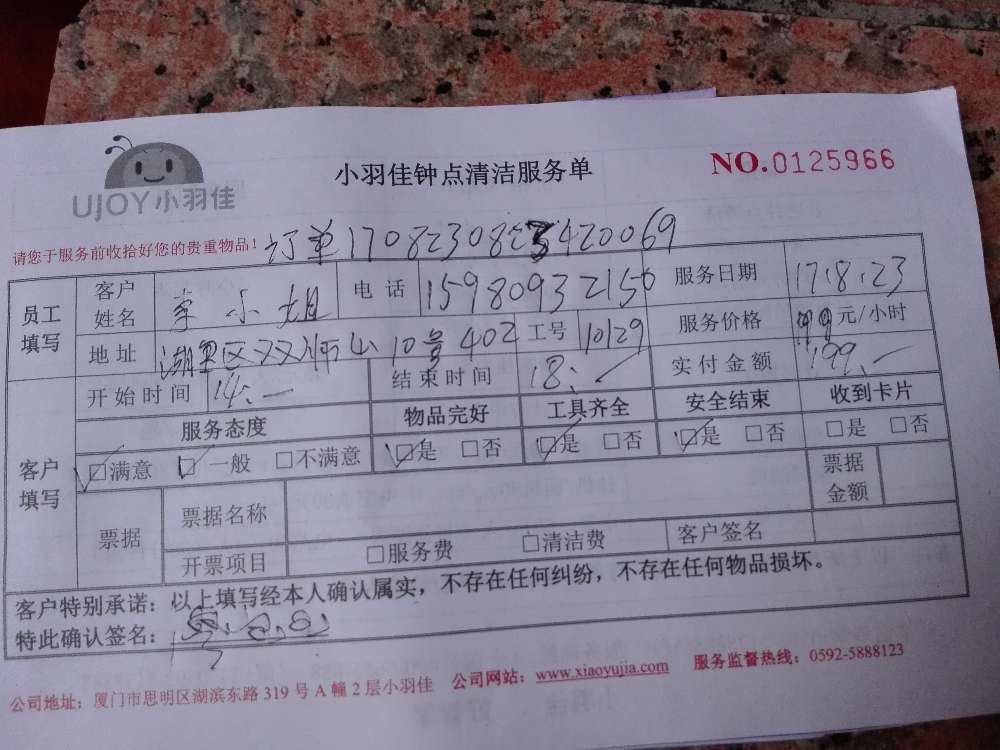 UJOY小羽佳
小羽佳钟点清洁服务单
NO.0125966
请您于服务前收拾好您的贵重物品！
订单170823082 420069
员工填写
客户姓名 李小姐 电话 15980932150 服务日期 17.8.23
地址 湖里区双狮山10号402 工号 10129 服务价格 元/小时
开始时间 14:— 结束时间 18:— 实付金额 199.—
客户填写
服务态度 物品完好 工具齐全 安全结束 收到卡片
☑满意 ☑一般 □不满意 ☑是 □否 ☑是 □否 ☑是 □否 □是 □否
票据 票据名称 票据金额
开票项目 □服务费 □清洁费 客户签名
客户特别承诺：以上填写经本人确认属实，不存在任何纠纷，不存在任何物品损坏。
特此确认签名：
公司地址：厦门市思明区湖滨东路319号A幢2层小羽佳 公司网站：www.xiaoyujia.com 服务监督热线：0592-5888123